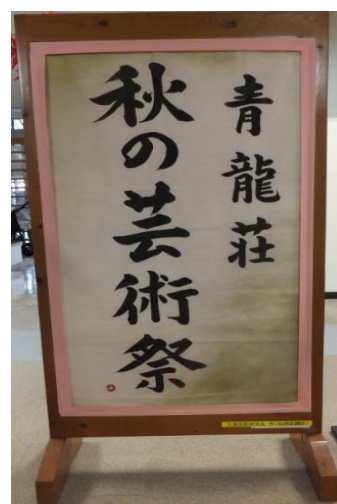 青龍荘
秋の芸術祭